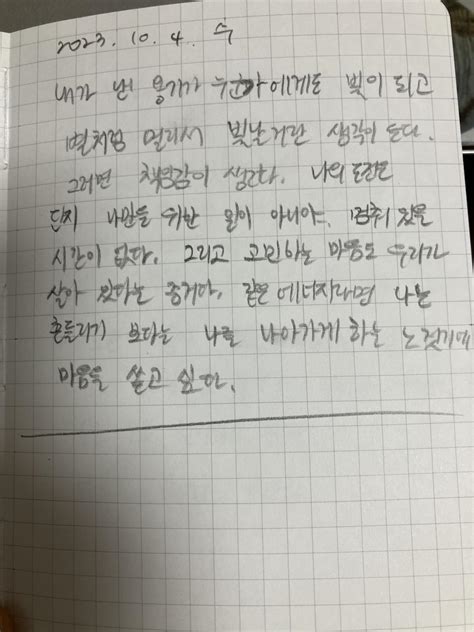 2023. 10. 4. 수
내가 낸 용기가 누군가에게도 빛이 되고
별처럼 멀리서 빛날거란 생각이 든다.
그러면 책임감이 생긴다. 나의 도전은
단지 나만을 위한 일이 아니야. 멈춰 있을
시간이 없다. 그리고 고민하는 마음도 우리가
살아 있다는 증거다. 같은 에너지라면 나는
흔들리기 보다는 나를 나아가게 하는 노젓기에
마음을 쓰고 싶다.